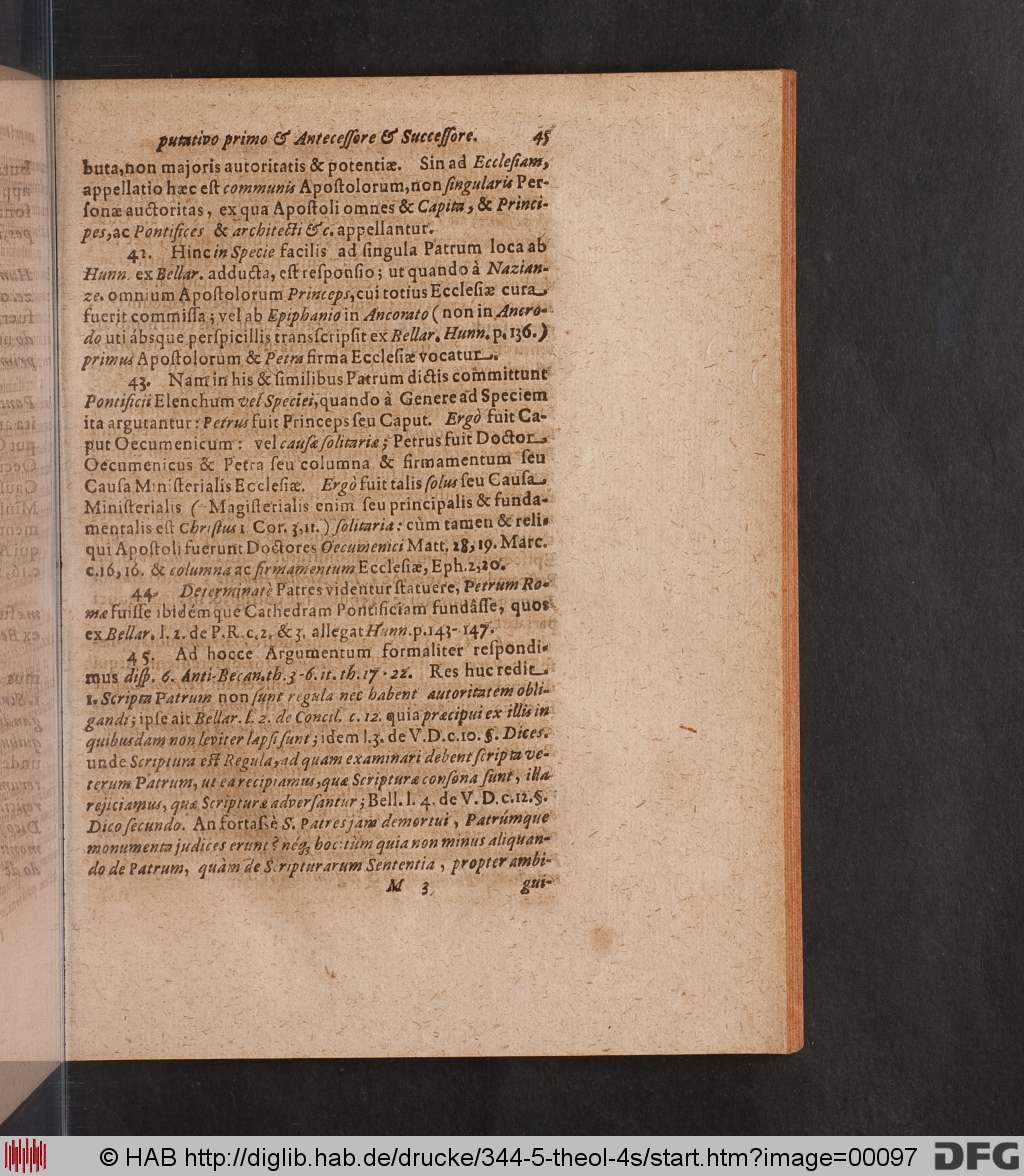 putativo primo & Antecessore & Successore. 45
buta, non majoris autoritatis & potentiæ. Sin ad Ecclesiam,
appellatio hæc est communis Apostolorum, non singularis Per-
sonæ auctoritas, ex qua Apostoli omnes & Capita, & Princi-
pes, ac Pontifices & architecti &c. appellantur.
42. Hinc in Specie facilis ad singula Patrum loca ab
Hunn. ex Bellar. adducta, est responsio; ut quando à Nazian-
ze. omnium Apostolorum Princeps, cui totius Ecclesiæ cura
fuerit commissa; vel ab Epiphanio in Ancorato (non in Ancro-
do uti ábsque perspicillis transcripsit ex Bellar. Hunn. p. 136.)
primus Apostolorum & Petra firma Ecclesiæ vocatur.
43. Nam in his & similibus Patrum dictis committunt
Pontificii Elenchum vel Speciei, quando à Genere ad Speciem
ita argutantur: Petrus fuit Princeps seu Caput. Ergò fuit Ca-
put Oecumenicum: vel causæ solitariæ; Petrus fuit Doctor
Oecumenicus & Petra seu columna & firmamentum seu
Causa Ministerialis Ecclesiæ. Ergò fuit talis solus seu Causa
Ministerialis (Magisterialis enim seu principalis & funda-
mentalis est Christus 1 Cor. 3, 11.) solitaria: cùm tamen & reli-
qui Apostoli fuerunt Doctores Oecumenici Matt. 28, 19. Marc.
c. 16, 16. & columna ac firmamentum Ecclesiæ, Eph. 2, 20.
44. Determinatè Patres videntur statuere, Petrum Ro-
mæ fuisse ibidémque Cathedram Pontificiam fundâsse, quos
ex Bellar. l. 2. de P. R. c. 2. & 3. allegat Hunn. p. 143-147.
45. Ad hocce Argumentum formaliter respondi-
mus disp. 6. Anti-Becan. th. 3-6. it. th. 17-22. Res huc redit
1. Scripta Patrum non sunt regula nec habent autoritatem obli-
gandi; ipse ait Bellar. l. 2. de Concil. c. 12. quia præcipui ex illis in
quibusdam non leviter lapsi sunt; idem l. 3. de V. D. c. 10. §. Dices.
unde Scriptura est Regula, ad quam examinari debent scripta ve-
terum Patrum, ut ea recipiamus, quæ Scripturæ consona sunt, illa
rejiciamus, quæ Scripturæ adversantur; Bell. l. 4. de V. D. c. 12. §.
Dico secundo. An fortassè S. Patres jam demortui, Patrúmque
monumenta judices erunt? néq; hoc: tùm quia non minus aliquan-
do de Patrum, quàm de Scripturarum Sententia, propter ambi-
M 3 gui-
© HAB http://diglib.hab.de/drucke/344-5-theol-4s/start.htm?image=00097 DFG